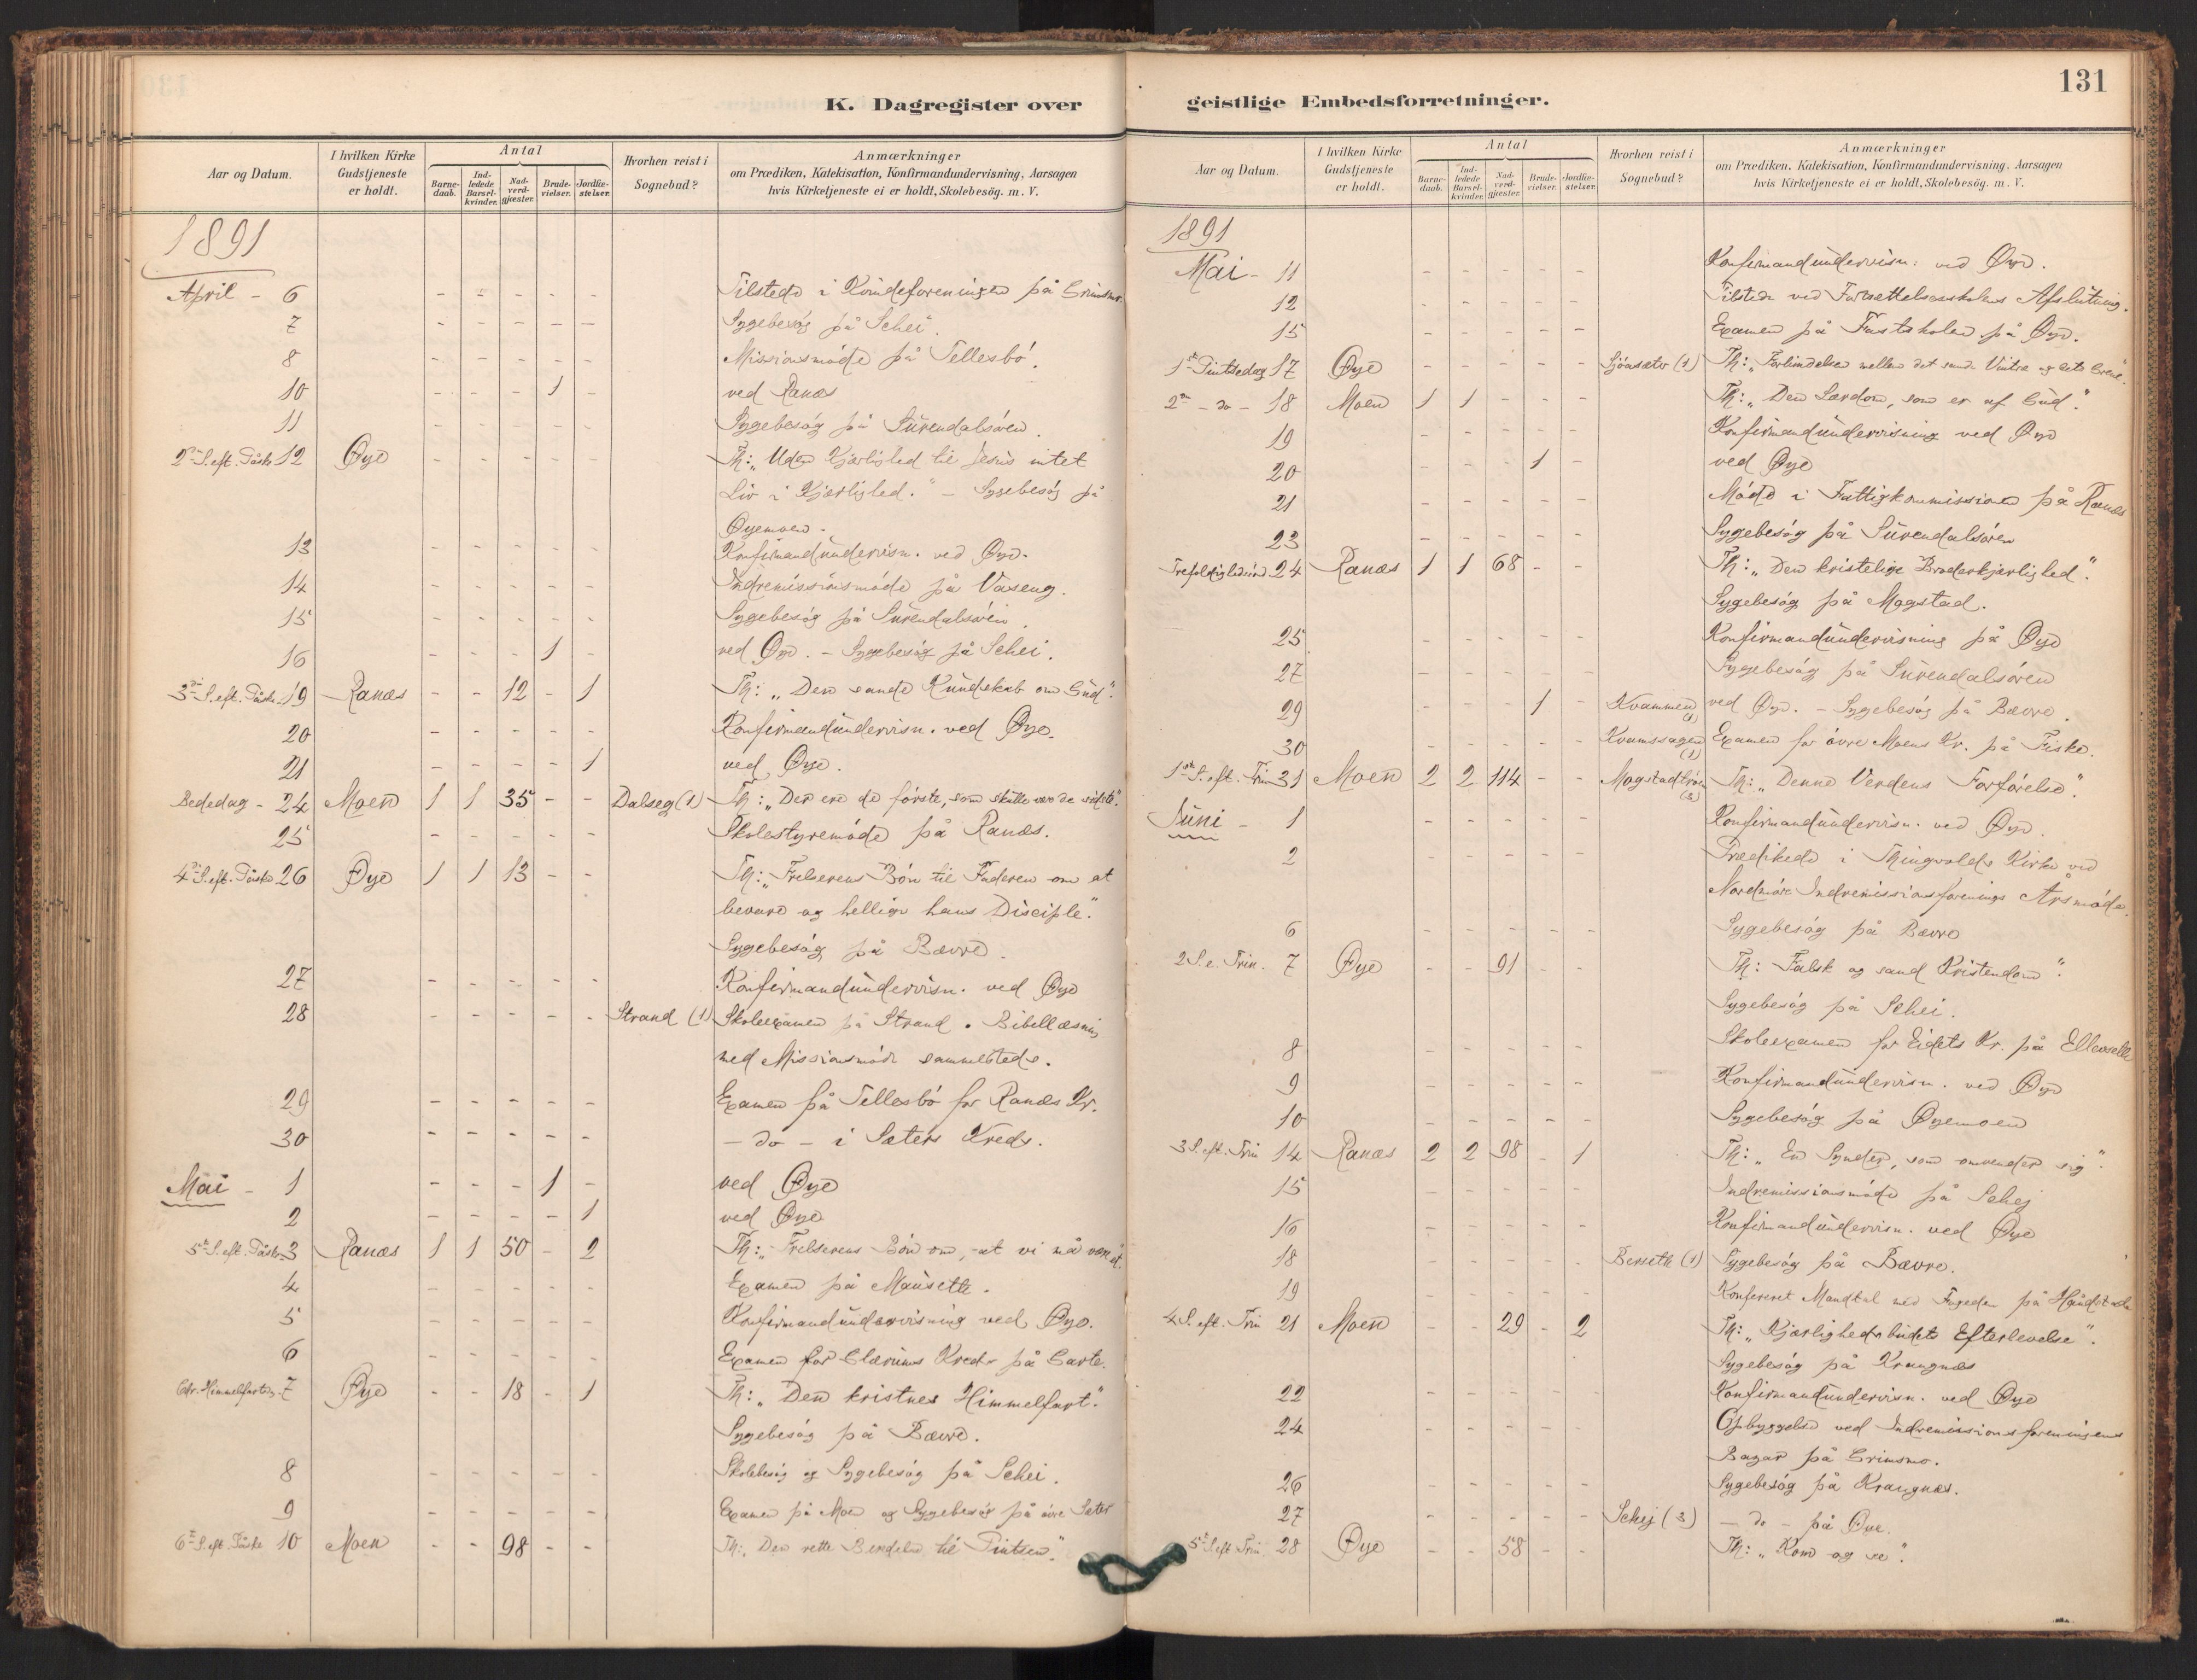 K. Dagregister over
Aar og Datum. | I hvilken Kirke Gudstjeneste er holdt. | Antal | Barnedaab. | Indledede Barselkvinder. | Nadverdgjæster. | Brudevielser. | Jordfæstelser. | Hvorhen reist i Sognebud? | Anmærkninger om Prædiken, Katekisation, Konfirmandundervisning, Aarsagen hvis Kirketjeneste ei er holdt, Skolebesög. m. V.
1891
April - 6 - - - - - Tilstede i Kvindeforeningen på Grimsmo.
7 - - - - - Sygebesög på Schei.
8 - - - - - Missionsmöde på Tellesbö.
10 - - - 1 - ved Ranæs
11 - - - - - Sygebesög på Surendalsören.
2den S. eft. Påske 12 Øye - - - - - Th: „Uden Kjærlighed til Jesus intet
Liv i Kjærlighed." - Sygebesög på
Øyemoen.
13 - - - - - Konfirmandundervisn. ved Øye.
14 - - - - - Indremissionsmöde på Våseng.
15 - - - - - Sygebesög på Surendalsören.
16 - - - 1 - ved Øye. - Sygebesög på Schei.
3die S. eft. Påske 19 Ranæs - - 12 - 1 Th: „Den sande Kundskab om Gud".
20 - - - - - Konfirmandundervisn. ved Øye.
21 - - - - 1 ved Øye.
Bededag - 24 Moen 1 1 35 - - Dalseg (1) Th: „Der ere de förste, som skulle vær de sidste".
25 - - - - - Skolestyremöde på Ranæs.
4de S. eft. Påske 26 Øye 1 1 13 - - Th: „Frelserens Bön til Faderen om at
bevare og hellige hans Disciple".
Sygebesög på Bævre.
27 - - - - - Konfirmandundervisn. ved Øye
28 - - - - - Strand (1) Skoleexamen på Strand. Bibellæsning
med Missionsmöde sammesteds.
29 - - - - - Examen på Tellesbö for Ranæs Kr.
30 - - - - - - do - i Sæters Kreds.
Mai - 1 - - - 1 - ved Øye
2 - - - - 1 ved Øye
5te S. eft. Påske 3 Ranæs 1 1 50 - 2 Th: „Frelserens Bön om, at vi må være ét.
4 - - - - - Examen på Mausette.
5 - - - - - Konfirmandundervisning ved Øye.
6 - - - - - Examen for Glærums Kreds på Garte.
Chr. Himmelfartsdg. 7 Øye - - 18 - 1 Th: „Den kristnes Himmelfart."
Sygebesög på Bævre.
8 - - - - - Skolebesög og Sygebesög på Schei.
9 - - - - - Examen på Moen og Sygebesög på övre Sæter
6te S. eft. Påske 10 Moen - - 98 - - Th: „Den rette Beredelse til Pintsen".
131
geistlige Embedsforretninger.
Aar og Datum. | I hvilken Kirke Gudstjeneste er holdt. | Antal | Barnedaab. | Indledede Barselkvinder. | Nadverdgjæster. | Brudevielser. | Jordfæstelser. | Hvorhen reist i Sognebud? | Anmærkninger om Prædiken, Katekisation, Konfirmandundervisning, Aarsagen hvis Kirketjeneste ei er holdt, Skolebesög. m. V.
1891
Mai - 11 - - - - - Konfirmandundervisn. ved Øye.
12 - - - - - Tilstede ved Fortsættelsesskolens Afslutning.
15 - - - - - Examen på Fastskolen på Øye.
1ste Pintsedag 17 Øye - - - - - Sjöasæter (1) Th: „Forbindelsen mellem det sande Vintræ og dets Grene".
2den - do - 18 Moen 1 1 - - - Th: „Den Lærdom, som er af Gud."
19 - - - - - Konfirmandundervisning ved Øye
20 - - - 1 - ved Øye
21 - - - - - Möde i Fattigkommissionen på Ranæs
23 - - - - - Sygebesög på Surendalsören
Trefoldighedssönd 24 Ranæs 1 1 68 - - Th: „Den kristelige Broderkjærlighed".
Sygebesög på Mogstad.
25 - - - - - Konfirmandundervisning på Øye
27 - - - - - Sygebesög på Surendalsören
29 - - - 1 - Kvammen (1) ved Øye. - Sygebesög på Bævre.
30 - - - - - Kvamssagen (1) Examen for övre Moens Kr. på Fiske.
1ste S. eft. Trin 31 Moen 2 2 114 - - Th: „Denne Verdens Forförelse".
Juni - 1 - - - - - Konfirmandundervisn. ved Øye.
2 - - - - - Prædikede i Thingvolds Kirke ved
Nordmöre Indremissionsforenings Årsmöde.
6 - - - - - Sygebesög på Bævre
2 S. e. Trin. 7 Øye - - 91 - - Th: Falsk og sand Kristendom".
Sygebesög på Schei.
8 - - - - - Skoleexamen for Eidets Kr. på
9 - - - - - Konfirmandundervisn. ved Øye
10 - - - - - Sygebesög på Øyemoen
3 S. eft. Trin 14 Ranæs 2 2 98 - 1 Th: „En Synder, som omvender sig".
15 - - - - - Indremissionsmöde på Schej
16 - - - - - Konfirmandundervisn. ved Øye
18 - - - - - (1) Sygebesög på Bævre.
19 - - - - - Konfereret Mandtal med Fogeden på
4 S. eft. Trin 21 Moen - - 29 - 2 Th: „Kjærlighedsbudets Efterlevelse".
Sygebesög på Krangnæs
22 - - - - - Konfirmandundervisn. ved Øye
24 - - - - - Opbyggelse ved Indremissionsforeningens
Bazar på Grimsmo.
26 - - - - - Sygebesög på Krangnæs.
27 - - - - - Schej (3) - do - på Øye.
5te S. eft. Trin. 28 Øye - - 58 - - Th: „Kom og se".